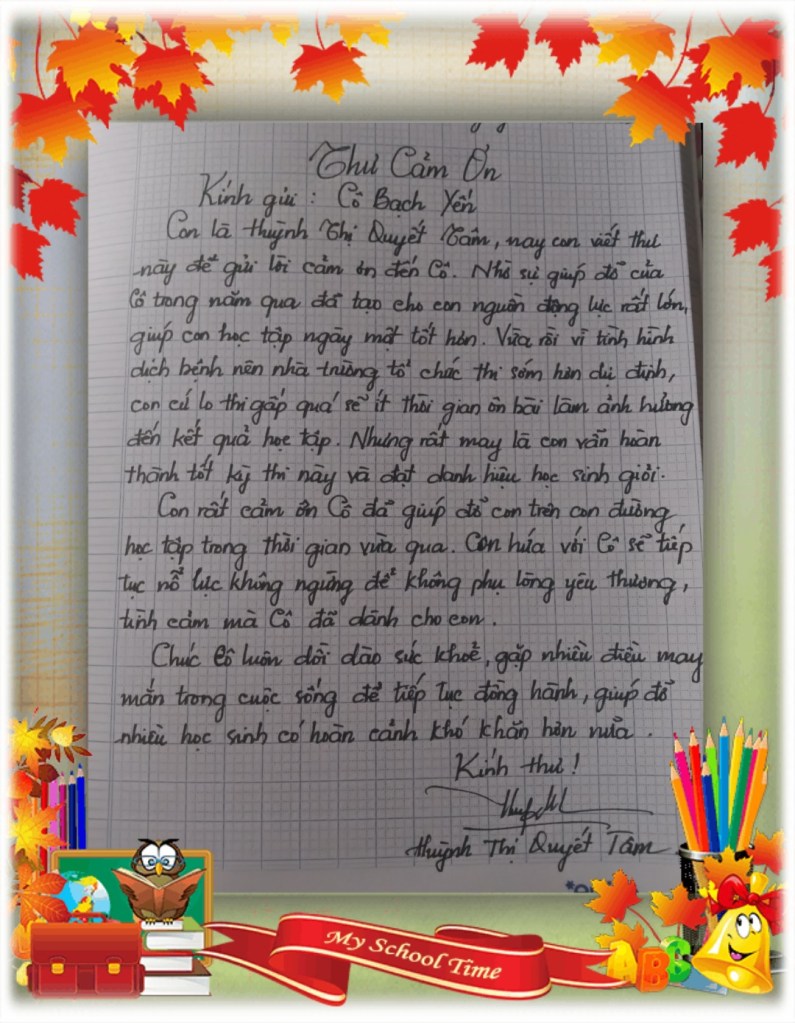 Thư Cảm Ơn
Kính gửi : Cô Bạch Yến
Con là Huỳnh Thị Quyết Tâm, nay con viết thư
này để gửi lời cảm ơn đến Cô. Nhờ sự giúp đỡ của
Cô trong năm qua đã tạo cho con nguồn động lực rất lớn,
giúp con học tập ngày một tốt hơn. Vừa rồi vì tình hình
dịch bệnh nên nhà trường tổ chức thi sớm hơn dự định,
con cứ lo thi gấp quá sẽ ít thời gian ôn bài làm ảnh hưởng
đến kết quả học tập. Nhưng rất may là con vẫn hoàn
thành tốt kỳ thi này và đạt danh hiệu học sinh giỏi.
Con rất cảm ơn Cô đã giúp đỡ con trên con đường
học tập trong thời gian vừa qua. Con hứa với Cô sẽ tiếp
tục nỗ lực không ngừng để không phụ lòng yêu thương,
tình cảm mà Cô đã dành cho con.
Chúc Cô luôn dồi dào sức khoẻ, gặp nhiều điều may
mắn trong cuộc sống để tiếp tục đồng hành, giúp đỡ
nhiều học sinh có hoàn cảnh khó khăn hơn nữa.
Kính thư!
Huỳnh Thị Quyết Tâm
My School Time
ABC